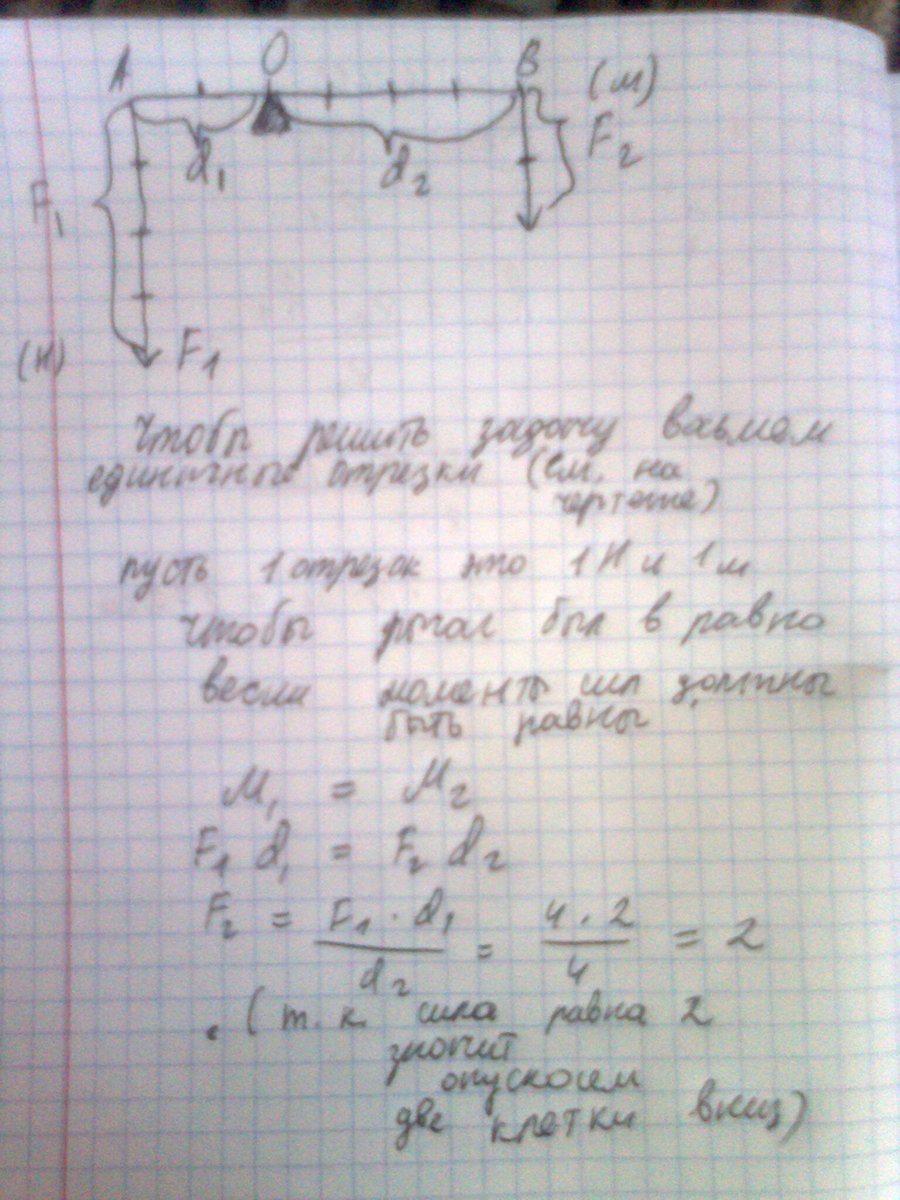 A O B
(м)
F₂
d₁ d₂
F₁
(Н) F₁
Чтобы решить задачу возьмем
единичные отрезки (см. на
чертеже)
пусть 1 отрезок это 1Н и 1м
Чтобы рычаг был в равно
весии моменты сил должны
быть равны
M₁ = M₂
F₁ d₁ = F₂ d₂
F₂ = F₁ · d₁ / d₂ = 4 · 2 / 4 = 2
(т.к. сила равна 2
значит
опускаем
две клетки вниз)